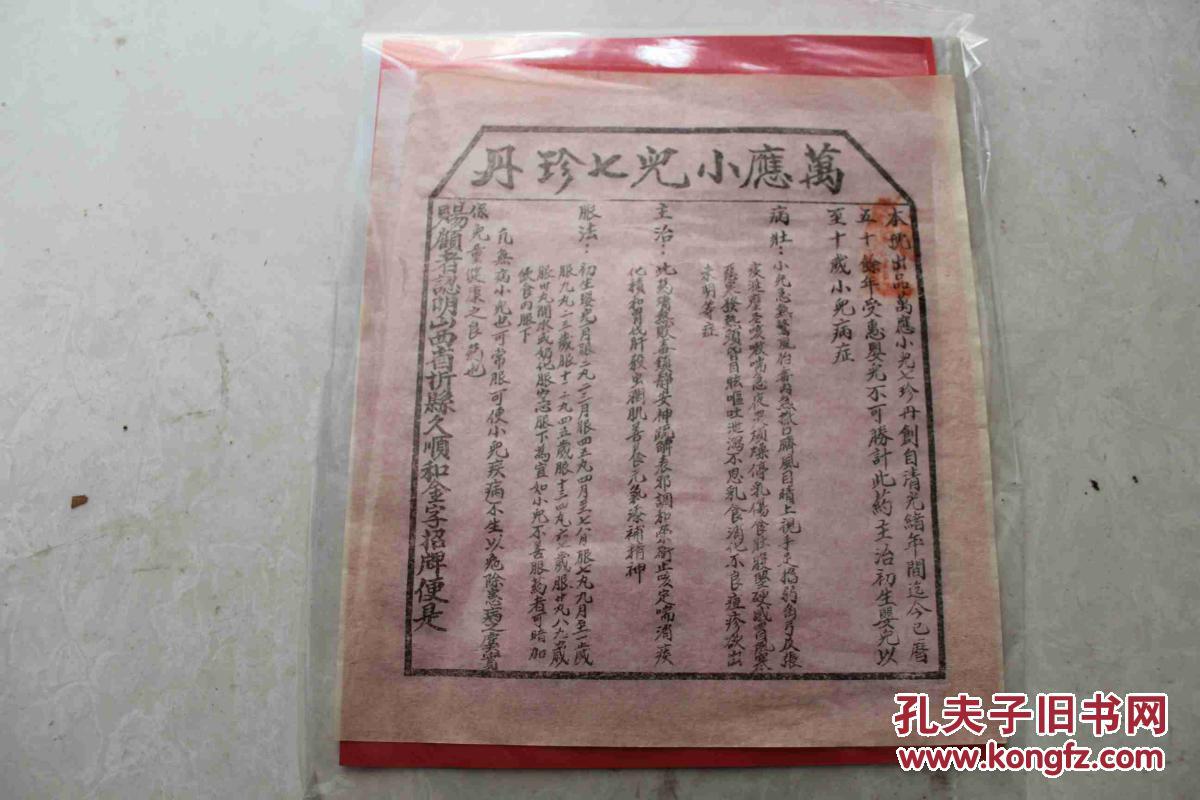 萬應小兒七珍丹
本號出品萬應小兒七珍丹創自清光緒年間迄今已曆
五十餘年受惠嬰兒不可勝計此药主治初生嬰兒以
至十歲小兒病症
病壯：小兒急熱驚風 臍風目睛上視手足搐弱角弓反張
喘急夜 煩燥停乳傷食肚腹堅硬感冒風寒
發熱頭昏目眩嘔吐泄瀉不思乳食消化不良痘疹欲出
未明等症
主治：此药 鎮靜安神疏解表邪調和榮衛止咳定喘消痰
化積和胃伐肝殺虫潤肌善食元氣滋補精神
服法：初生嬰兒一月服二九二三月服四五九四月至七八月服七九九月至一止歲
服九九二三歲服十二九四五歲服十三四九六七歲服廿九八九十歲
服卅九開水或奶化服空心服下為宜如小兒不善服药者可暗加
飲食內服下
凡無病小兒也可常服可使小兒疾病不生以免除患病之 實
係兒童健康之良药也
賜顧者認明山西省忻縣久順和金字招牌便是
孔夫子旧书网
www.kongfz.com